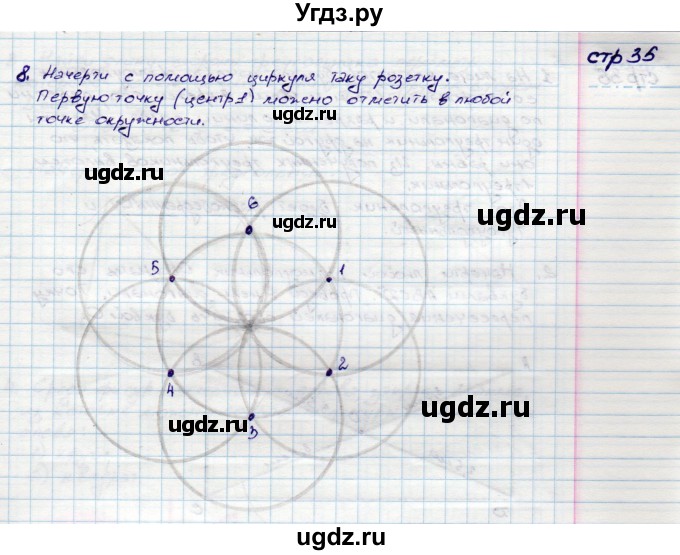 Угдз.ру
стр 35
8. Начерти с помощью циркуля таку розетку.
Первую точку (центр 1) можено отметить в любой
точке окружности.
ugdz.ru
ugdz.ru
6
5
1
4
2
3
ugdz.ru
ugdz.ru
ugdz.ru
ugdz.ru
ugdz.ru